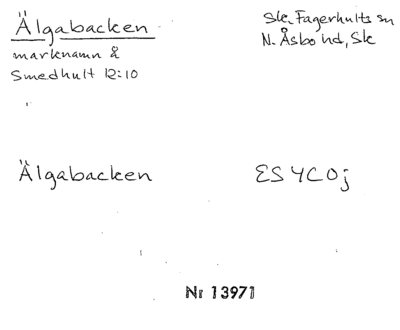 Älgabacken
marknamn å
Smedhult 12:10
Sk. Fagerhults sn
N. Åsbo hd, Sk
Älgabacken
ES4C0j
Nr 13971